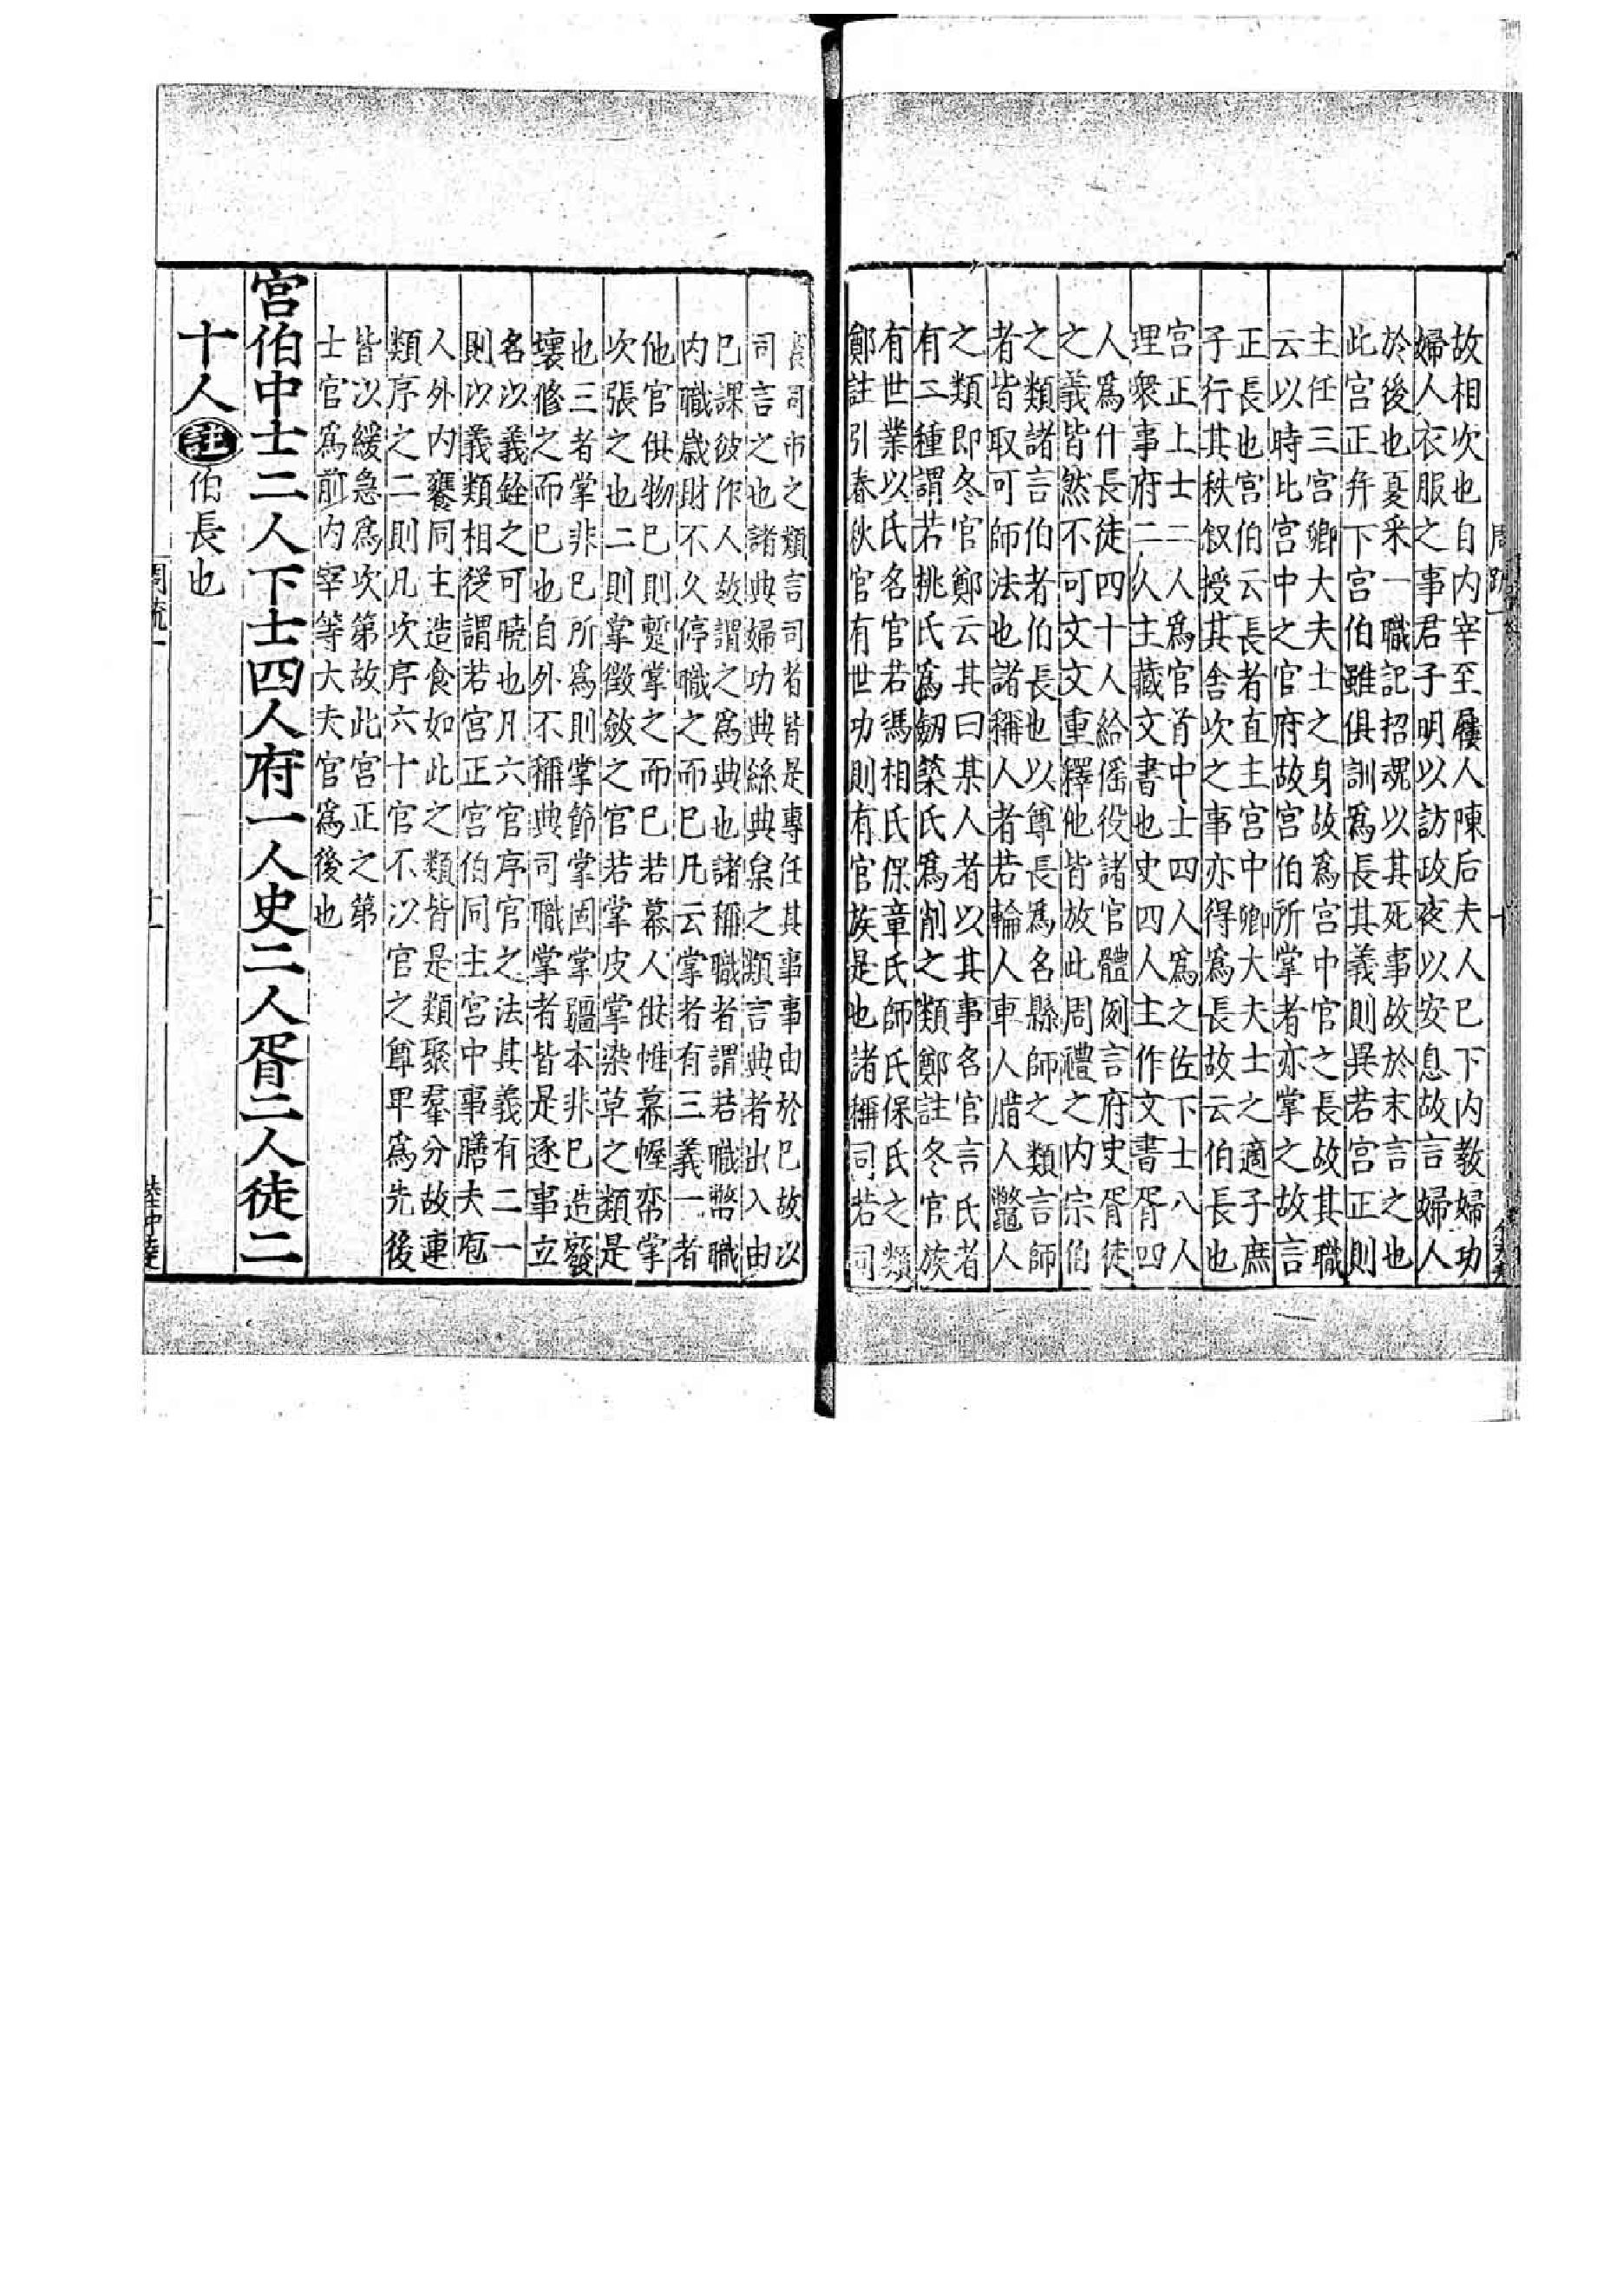 故相次也自内宰至屨人陳后夫人已下内教婦功
婦人衣服之事君子明以訪政夜以安息故言婦人
於後也夏采一職記招魂以其死事故於末言之也
此宫正并下宫伯雖俱訓爲長其義則異若宫正則
主任三宫卿大夫士之身故爲宫中官之長故其職
云以時比宫中之官府故宫伯所掌者亦掌之故言
正長也宫伯云長者直主宫中卿大夫士之適子庶
子行其秩叙授其舍次之事亦得爲長故云伯長也
宫正上士二人爲官首中士四人爲之佐下士八人
理衆事府二久主藏文書也史四人主作文書胥四
人爲什長徒四十人給傜役諸官體例言府史胥徒
之義皆然不可文文重釋他皆放此周禮之内宗伯
之類諸言伯者伯長也以尊長爲名縣師之類言師
者皆取可師法也諸稱人者若輪人車人腊人鼈人
之類即冬官鄭云其曰某人者以其事名官言氏者
有二種謂若桃氏爲劒築氏爲削之類鄭註冬官族
有世業以氏名官若馮相氏保章氏師氏保氏之類
鄭註引春秋官有世功則有官族是也諸稱司若司
裘司市之類言司者皆是專任其事事由於已故以
司言之也諸典婦功典絲典枲之類言典者出入由
已課彼作人故謂之爲典也諸稱職者謂若職幣職
内職歲財不久停職之而已凡云掌者有三義一者
他官供物已則暫掌之而已若幕人供帷幕幄帟掌
次張之也二則掌徵斂之官若掌皮掌染草之類是
也三者掌非已所爲則掌節掌固掌疆本非已造發
壞修之而已也自外不稱典司職掌者皆是逐事立
名以義銓之可曉也凡六官序官之法其義有二一
則以義類相從謂若宫正宫伯同主宫中事膳夫庖
人外内饔同主造食如此之類皆是類聚羣分故連
類序之二則凡次序六十官不以官之尊卑爲先後
皆以緩急爲次第故此宫正之第
士官爲前内宰等大夫官爲後也
宫伯中士二人下士四人府一人史二人胥二人徒二
十人 註 伯長也